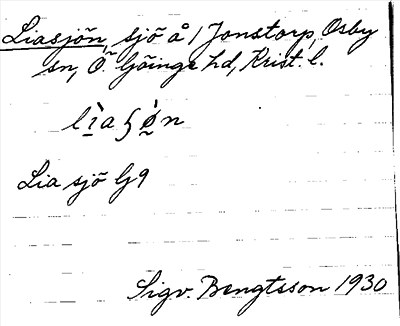 Liasjön, sjö å 1 Jonstorp, Osby
sn, Ö. Göinge hd, Krist. l.
lìaʃø̀n
Lia sjö G9
Sigv. Bengtsson 1930